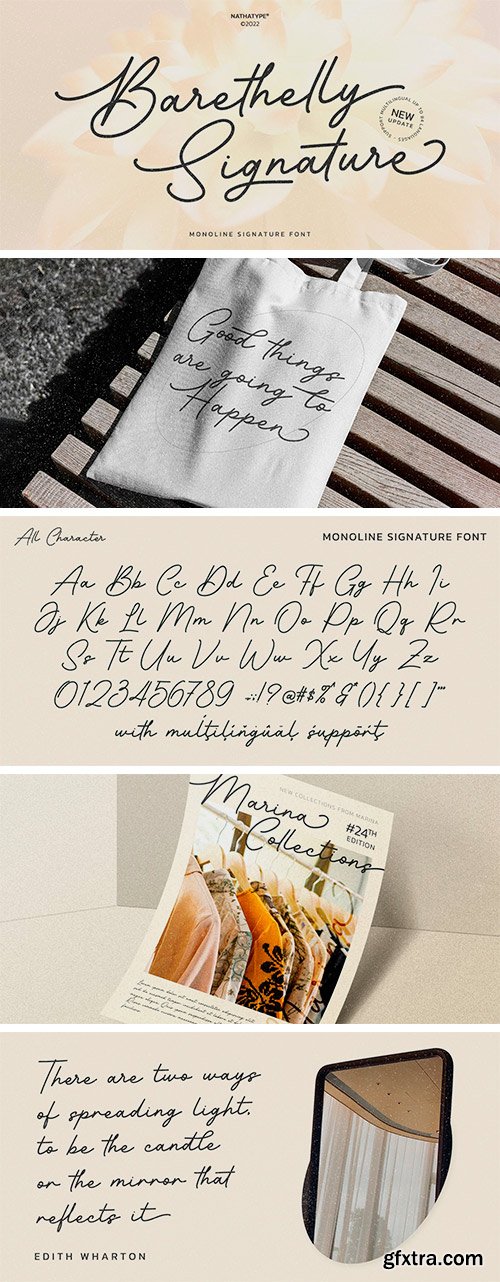 NATHATYPE®
©2022
Barethelly
Signature
SUPPORT MULTILINGUAL UP TO 84 LANGUAGES
NEW
UPDATE
MONOLINE SIGNATURE FONT
Good things
are going to
Happen
All Character
MONOLINE SIGNATURE FONT
Aa Bb Cc Dd Ee Ff Gg Hh Ii
Jj Kk Ll Mm Nn Oo Pp Qq Rr
Ss Tt Uu Vv Ww Xx Yy Zz
0123456789 .,:;!?@#$%&*(){}[]"'
NEW COLLECTIONS FROM MARINA
Marina
Collections
#24TH
EDITION
There are two ways
of spreading light,
to be the candle
or the mirror that
reflects it
EDITH WHARTON
gfxtra.com